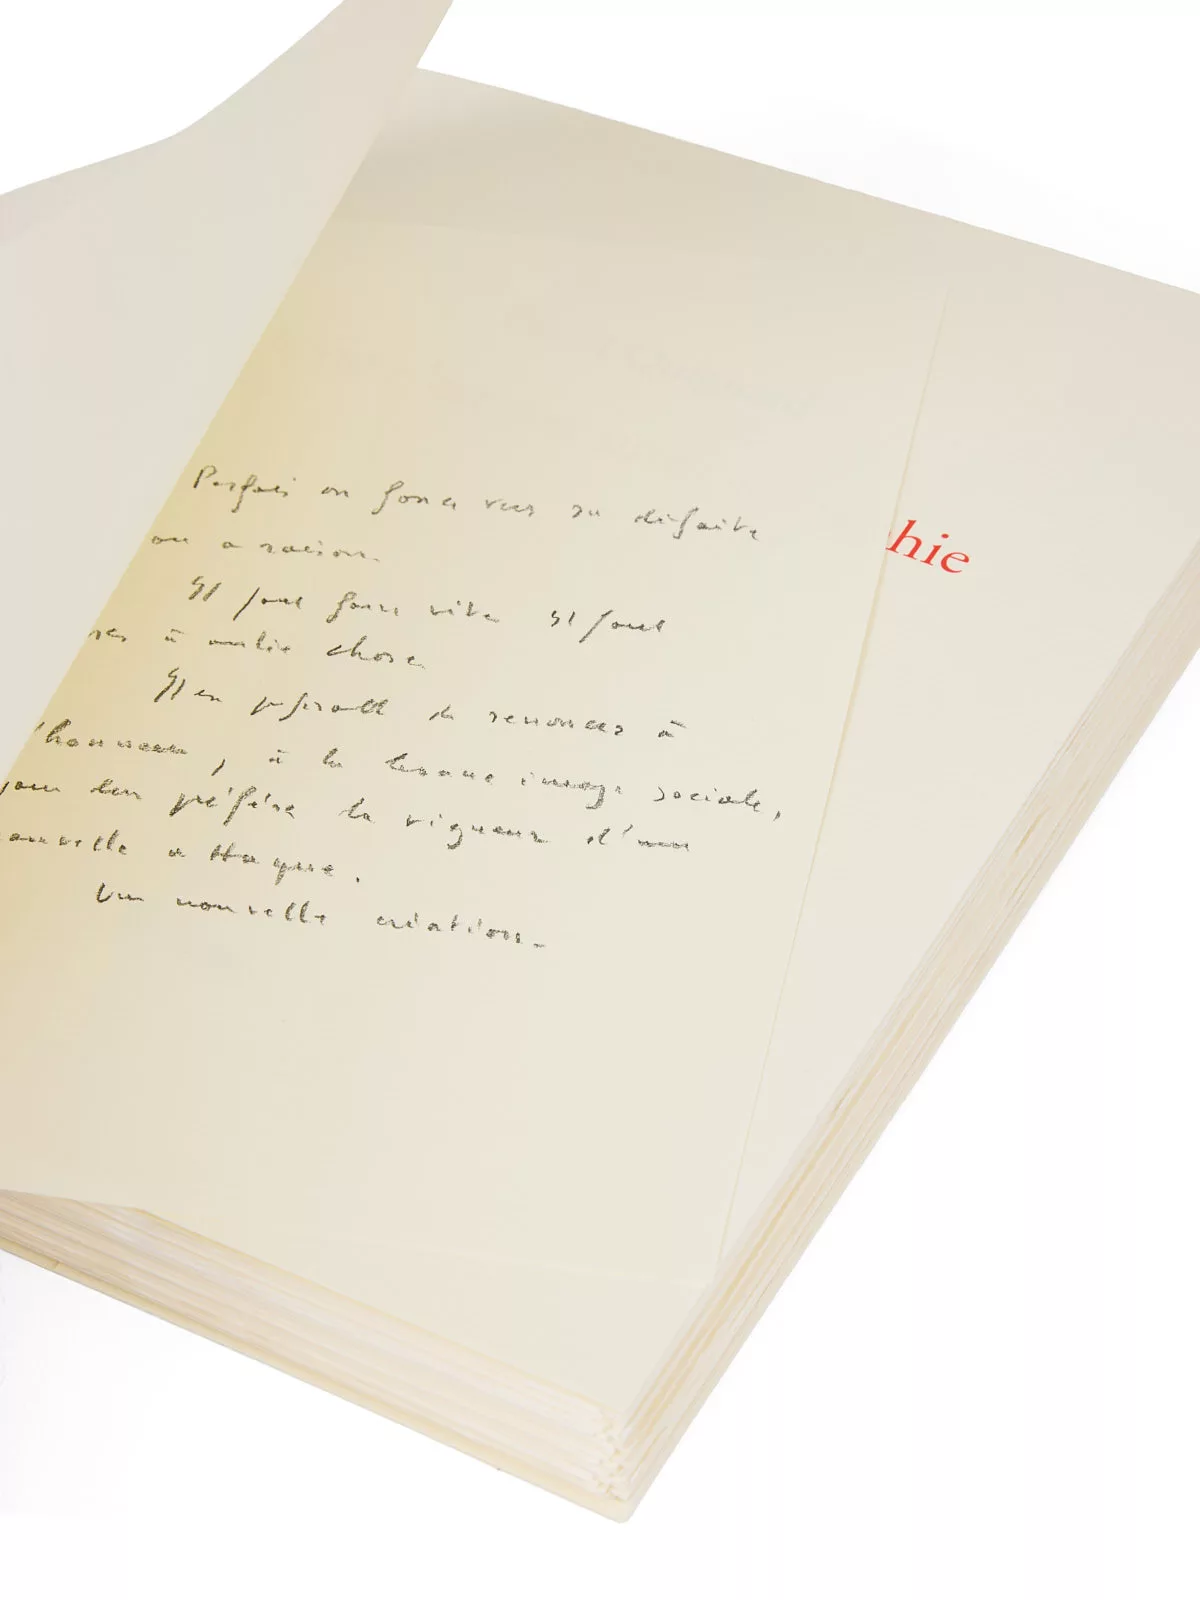 Parfois on fonce vers sa défaite
on a raison.
Il faut faire vite Il faut
à autre chose
Il est préférable de renoncer à
l'honneur, à la bonne image sociale,
préfére la vigueur d'une
nouvelle attaque.
Un nouvelle création.
hie